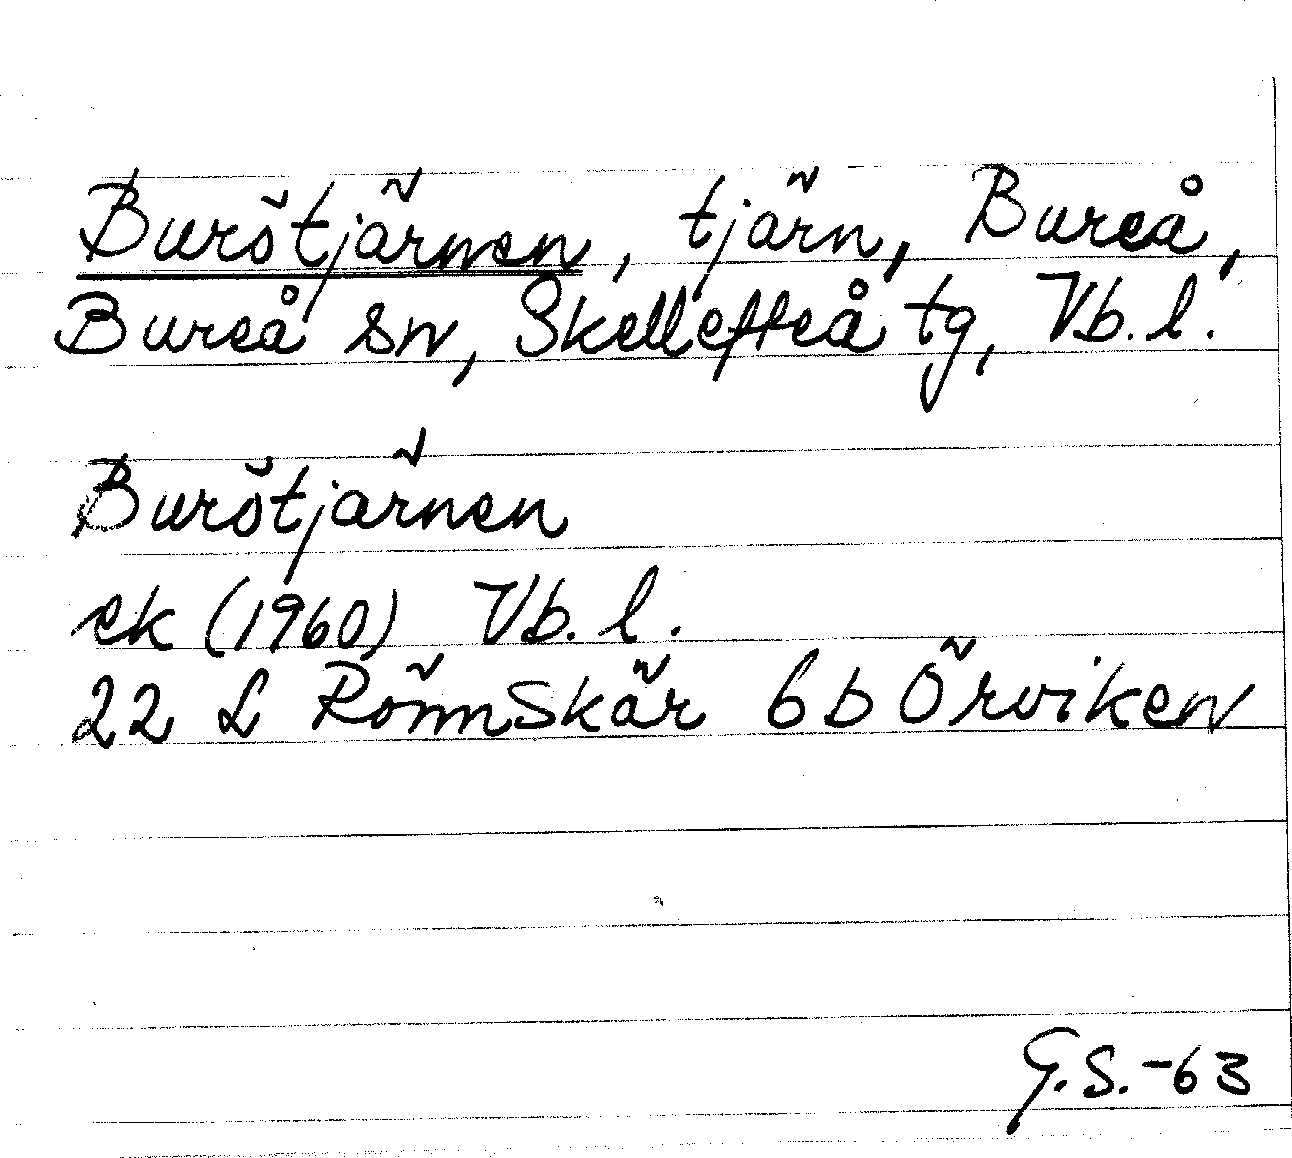 Burötjärnen, tjärn, Bureå,
Bureå sn, Skellefteå tg, Vb. l.
Burötjärnen
ek (1960) Vb. l.
22 L Rönnskär 6b Örviken
G.S.-63